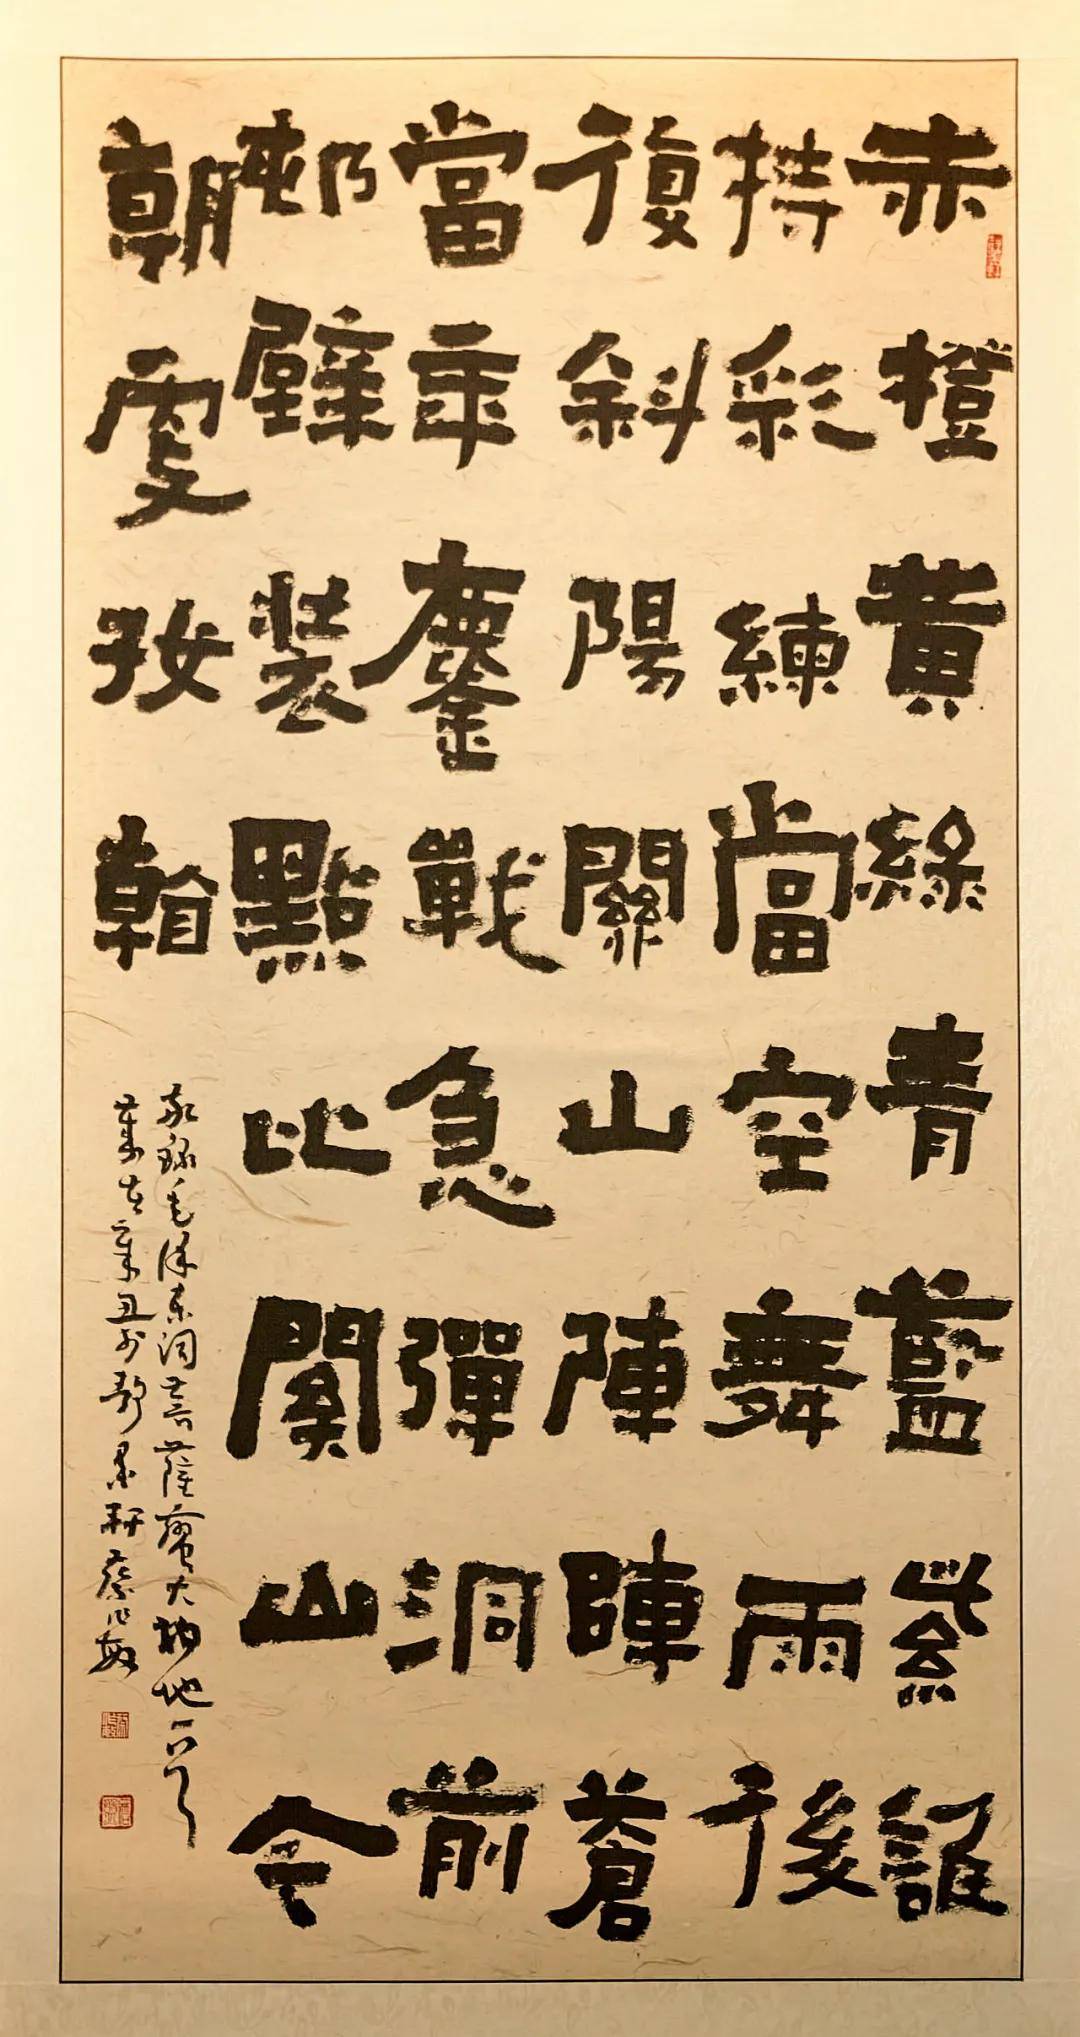 赤橙黄綠青藍紫誰
持彩練當空舞雨後
復斜陽關山陣陣蒼
當年鏖戰急彈洞前
邨壁裝點此關山今
朝更好看
敬録毛澤東詞菩薩蠻大柏地一首
歲在辛丑於墨軒蔡